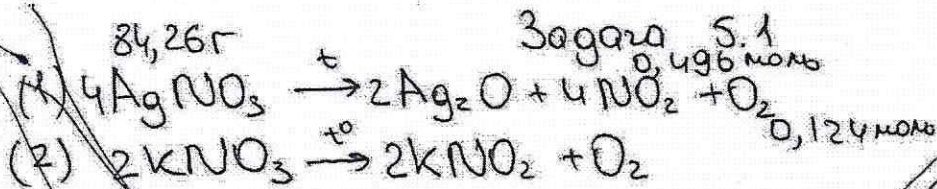 84,26г Задача 5.1
0,496 моль
(1) 4AgNO₃ →t 2Ag₂O + 4NO₂ + O₂
0,124 моль
(2) 2KNO₃ →t° 2KNO₂ + O₂